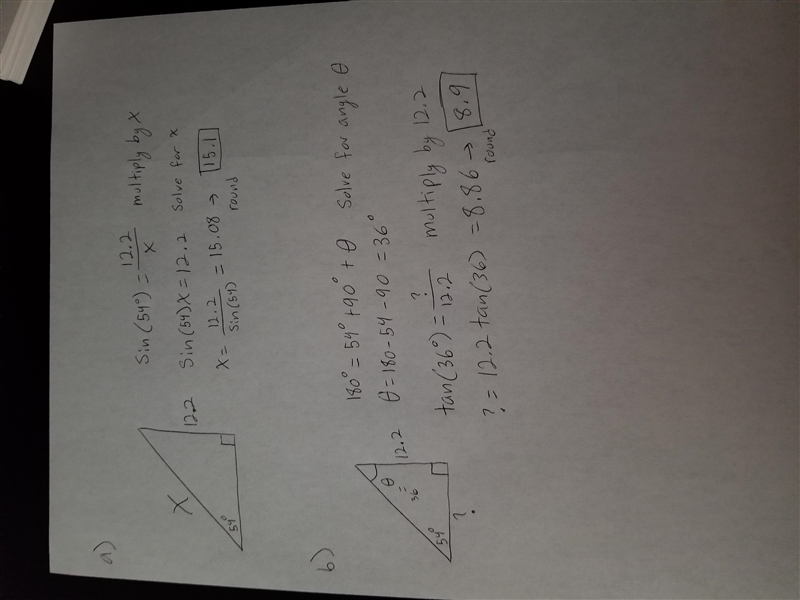 a)
X
54°
12.2
Sin(54°) = 12.2/x multiply by X
Sin(54)X = 12.2 Solve for x
X = 12.2/Sin(54) = 15.08 → 15.1
round
b)
θ
=
36
54°
12.2
?
180° = 54° + 90° + θ Solve for angle θ
θ = 180 - 54 - 90 = 36°
tan(36°) = ?/12.2 multiply by 12.2
? = 12.2 tan(36) = 8.86 → 8.9
round